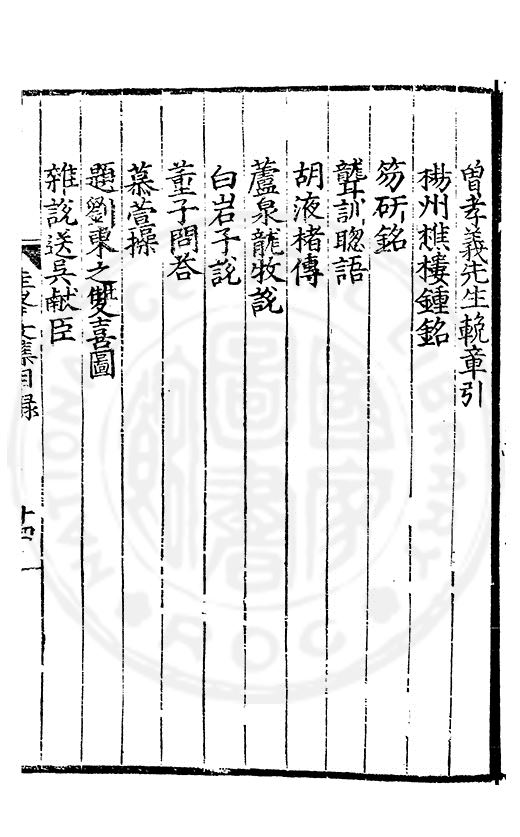 曾孝義先生輓章引
楊州樵樓鍾銘
笏硏銘
聾訓聰語
胡液楮傳
蘆泉龍牧說
白岩子說
董子問荅
慕萱操
題劉東之雙喜圖
雜說送吳献臣
文集目録
十四